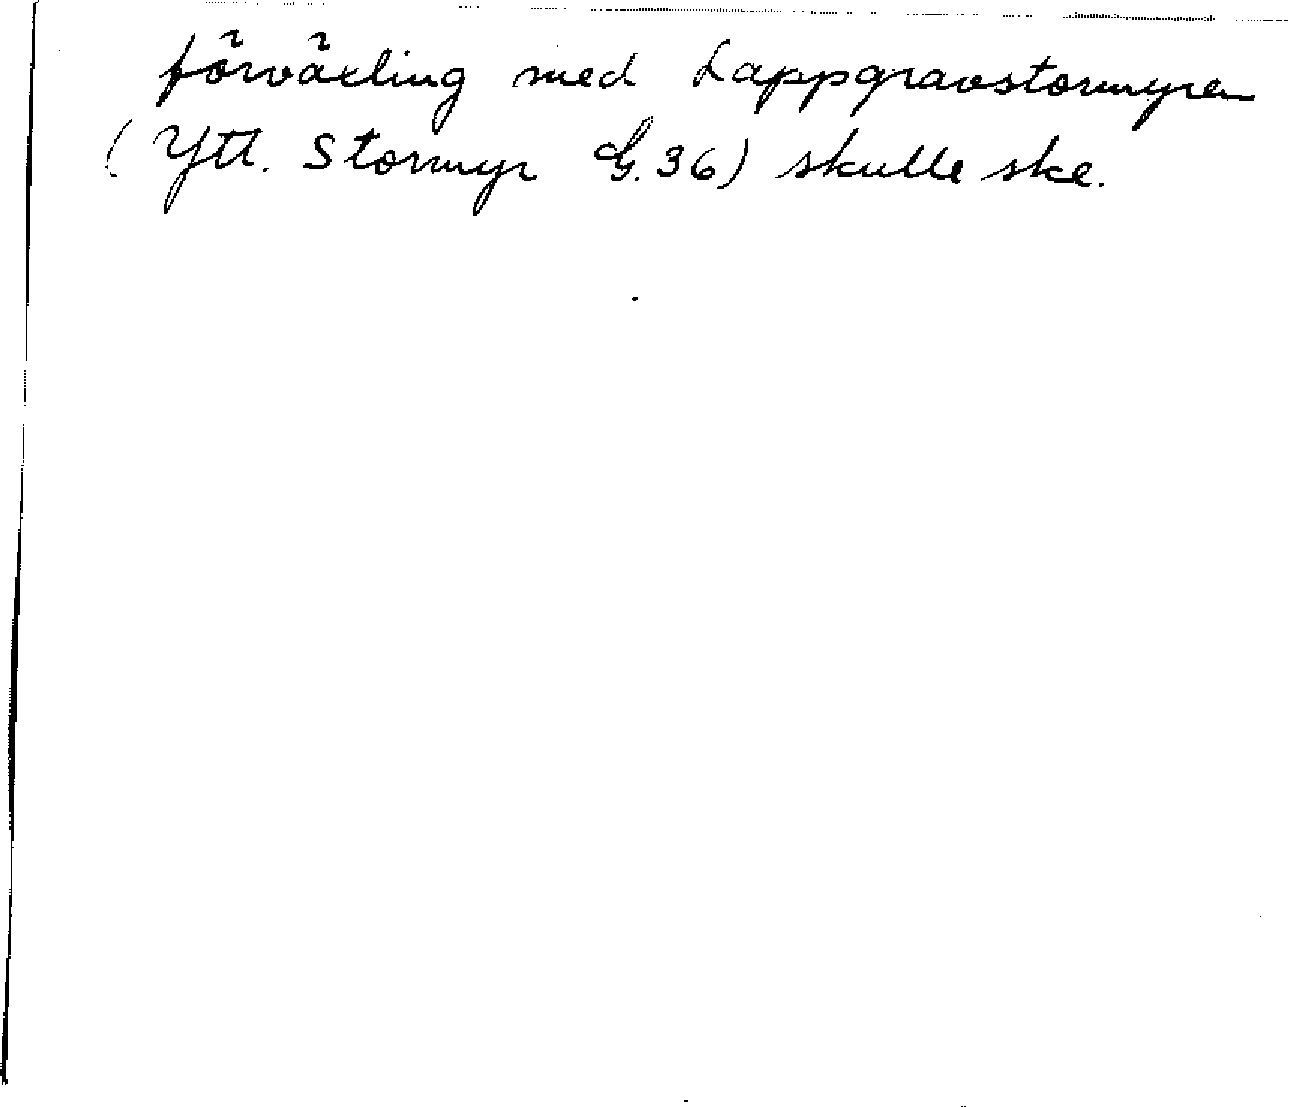 förväxling med Lappgravstormyren
(Ytt. Stormyr G.36) skulle ske.